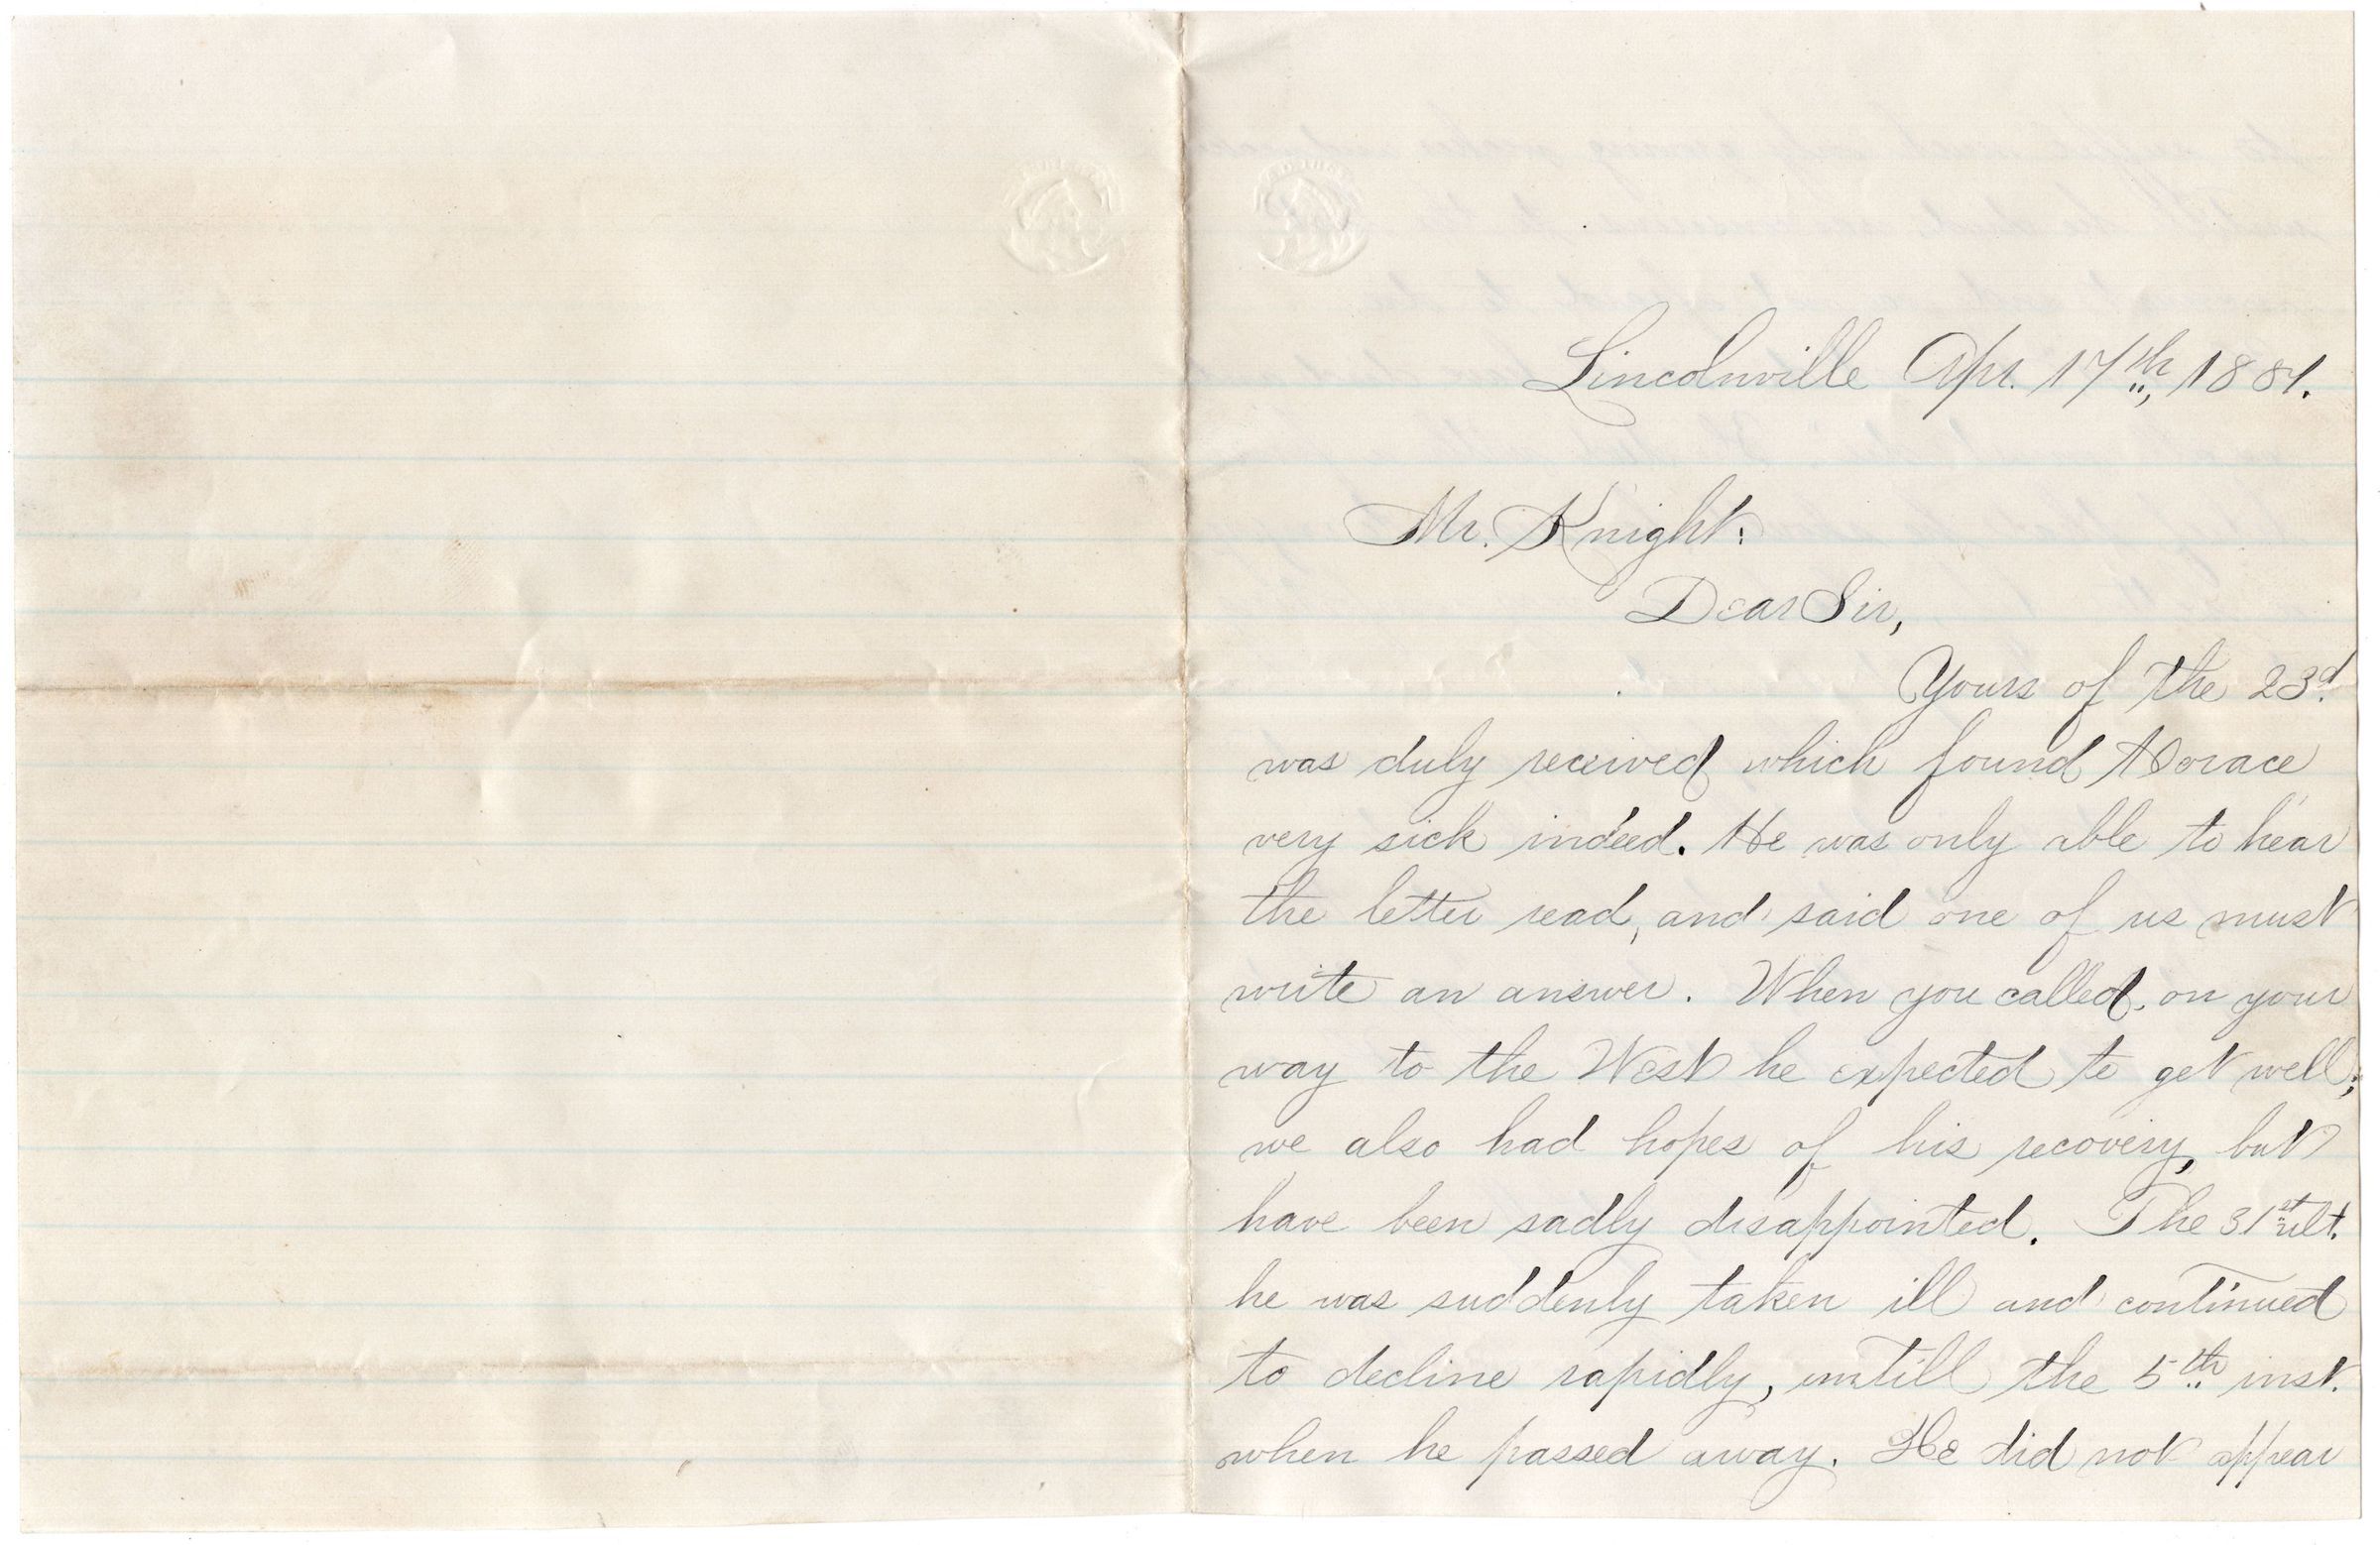 Lincolnville Apr. 17th, 1881.
Mr. Knight:
Dear Sir,
Yours of the 23d.
was duly received which found Horace
very sick indeed. He was only able to hear
the letter read, and said one of us must
write an answer. When you called, on your
way to the West he expected to get well;
we also had hopes of his recovery, but
have been sadly disappointed. The 31st ult.
he was suddenly taken ill and continued
to decline rapidly, untill the 5th inst.
when he passed away. He did not appear